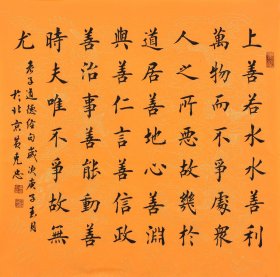 上善若水水善利
萬物而不爭處衆
人之所惡故幾於
道居善地心善淵
與善仁言善信政
善治事善能動善
時夫唯不爭故無
尤
老子道德經句歲次庚子春月
於北京黃克忠